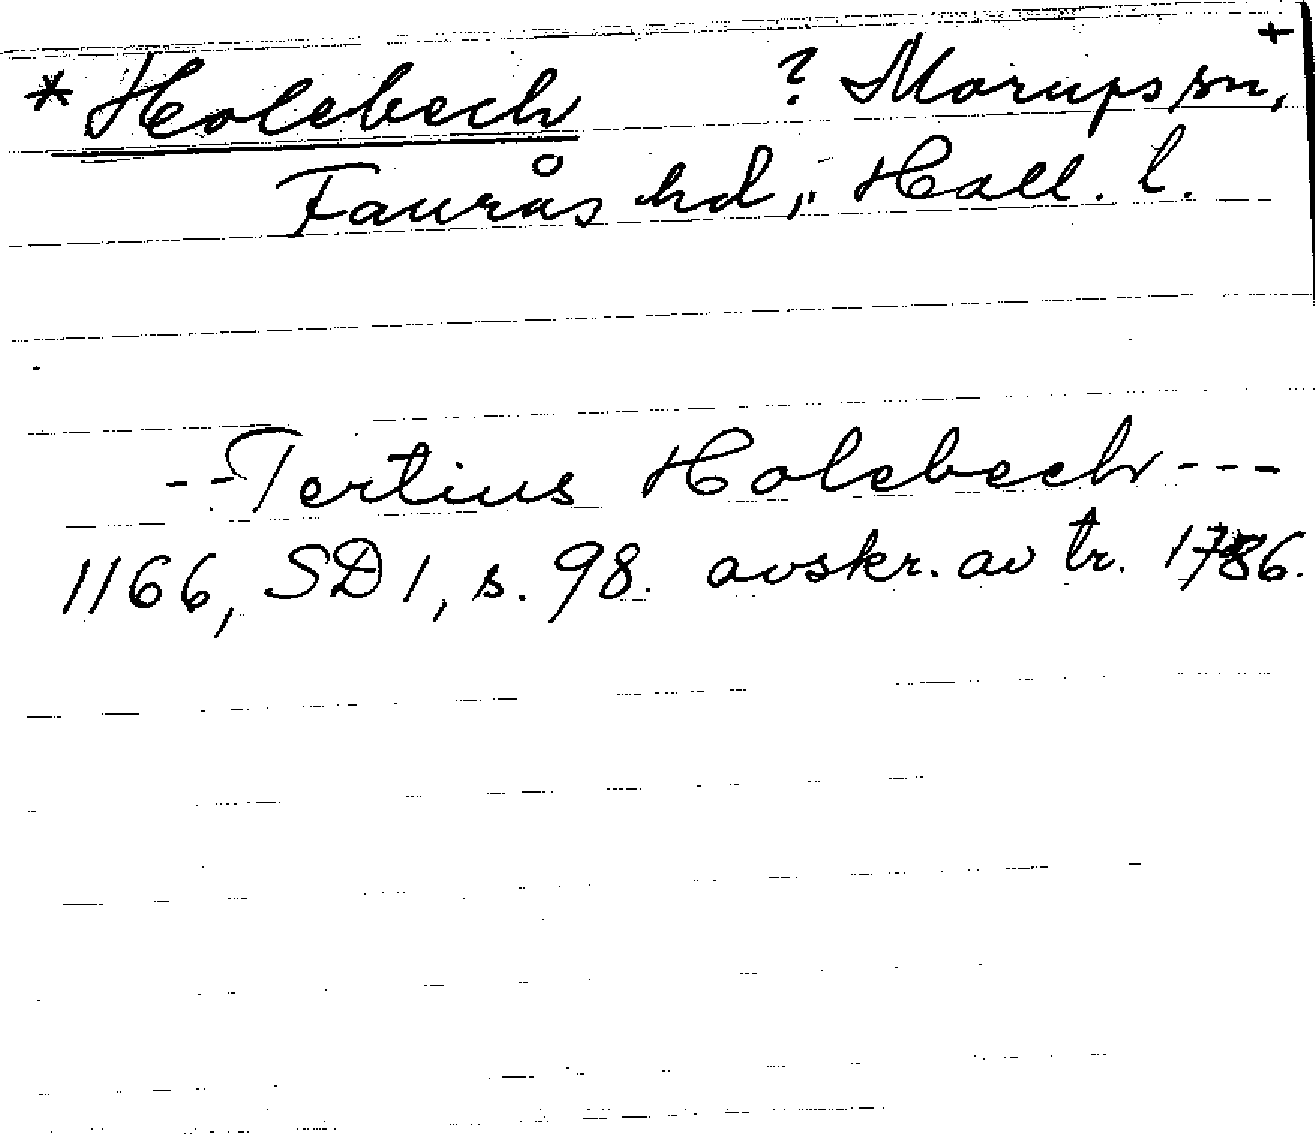 +
* Holebech ? Morups sn,
Faurås hd, Hall. l.
-- Tertius Holebech ---
1166, SD 1, s. 98. avskr. av tr. 1786.